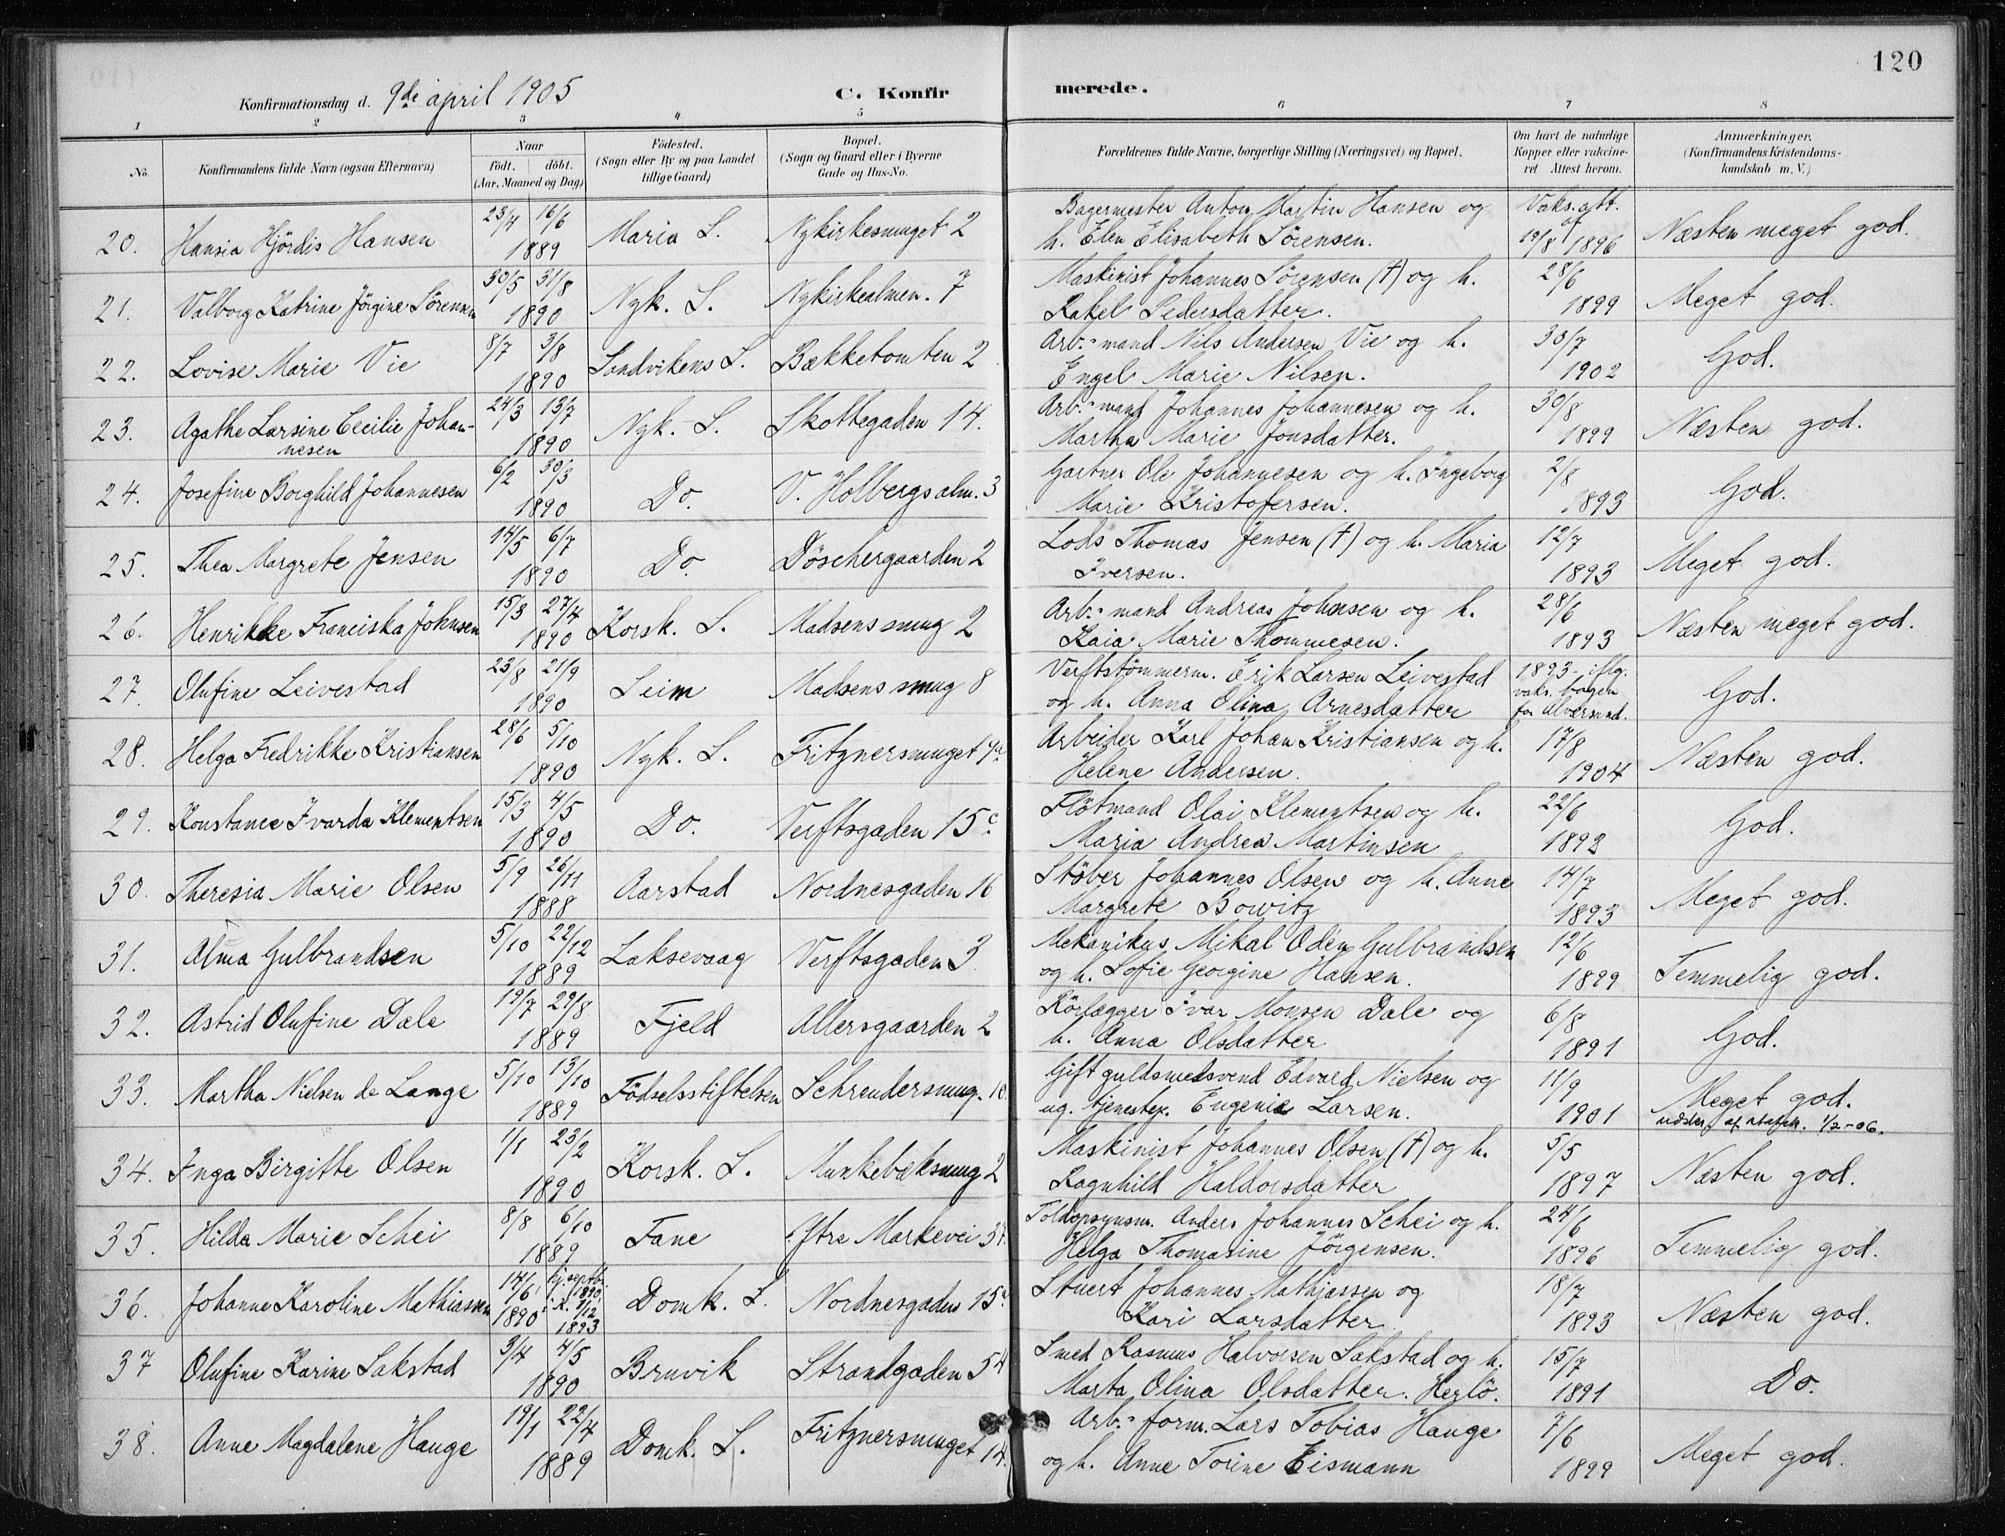 120
Konfirmationsdag d. 9de april 1905
C. Konfir merede.
1 2 3 4 5 6 7 8
No.
Konfirmandens fulde Navn (ogsaa Efternavn)
Naar
født. døbt.
(Aar, Maaned og Dag)
Fødested.
(Sogn eller By og paa Landet
tillige Gaard)
Bopæl.
(Sogn og Gaard eller i Byerne
Gade og Hus-No.
Forældrenes fulde Navne, borgerlige Stilling (Næringsvei) og Bopæl.
Om havt de naturlige
Kopper eller vakcine-
ret Attest herom.
Anmærkninger.
(Konfirmandens Kristendoms-
kundskab m. V.)
20. Hansia Hjördis Hansen 23/4 16/6 1889 Maria S. Nykirkesmuget 2 Bagermester Anton Martin Hansen og
h. Elen Elisabeth Sörensen. Vaks. att. af 19/8 1896 Næsten meget god.
21. Valborg Katrine Jörgine Sörensen 30/5 31/8 1890 Nyk. S. Nykirkealmen. 7 Maskinist Johannes Sörensen (†) og h.
Rakel Pedersdatter. 28/6 1899 Meget god.
22. Lovise Marie Vie 8/7 3/8 1890 Sandvikens S. Bækketomten 2 Arb.mand Nils Andersen Vie og h.
Engel Marie Nilsen. 30/7 1902 God.
23. Agathe Larsine Cecilie Johan-
nesen 24/3 13/7 1890 Nyk. S. Skottegaden 14. Arb.mand Johannes Johannesen og h.
Martha Marie Jonsdatter. 30/8 1899 Næsten god.
24. Josefine Borghild Johannesen 6/2 30/3 1890 Do. V. Holbergsalm. 3 Gartner Ole Johannesen og h. Ingeborg
Marie Kristofersen. 2/8 1893 God.
25. Thea Margrete Jensen 14/5 6/7 1890 Do. Döschergaarden 2 Lods Thomas Jensen (†) og h. Maria
Iversen. 12/7 1893 Meget god.
26. Henrikke Franciska Johnsen 15/3 27/4 1890 Korsk. S. Madsens smug 2 Arb.mand Andreas Johnsen og h.
Kaia Marie Thommesen. 28/6 1893 Næsten meget god.
27. Olufine Leivestad 23/8 21/9 1890 Seim Madsens smug 8 Verftstömmerm. Erik Larsen Leivestad
og h. Anna Olina Arnesdatter 1893 - iflg.
vaks. bogen
for Alversund. God.
28. Helga Fredrikke Kristiansen 28/6 5/10 1890 Nyk. S. Fritznersmuget 4a Arbeider Karl Johan Kristiansen og h.
Helene Andersen. 17/8 1904 Næsten god.
29. Konstance Ivarda Klementsen 15/3 4/5 1890 Do. Verftsgaden 15c. Flötmand Olai Klementsen og h.
Maria Andrea Martinsen 22/6 1892 God.
30. Theresia Marie Olsen 5/9 26/11 1888 Aarstad Nordnesgaden 16 Stöber Johannes Olsen og h. Anne
Margrete Bowitz 14/7 1893 Meget god.
31. Alma Gulbrandsen 5/10 22/12 1889 Laksevaag Verftsgaden 3 Mekanikus Mikal Oden Gulbrandsen
og h. Sofie Georgine Hansen. 12/6 1899 Temmelig god.
32. Astrid Olufine Dale 19/7 29/8 1889 Fjeld Allersgaarden 2 Rörlægger Ivar Monsen Dale og
h. Anna Olsdatter 6/8 1891 God.
33. Martha Nielsen de Lange 5/10 13/10 1889 Födselsstiftelsen Schreudersmug. 10. Gift guldsmedsvend Edvard Nielsen og
ug. tjenestep. Eugenie Larsen. 11/9 1901 Meget god.
34. Inga Birgitte Olsen 1/1 23/2 1890 Korsk. S. Munkebæksmug 2 Maskinist Johannes Olsen (†) og h.
Ragnhild Haldorsdatter 5/5 1897 Næsten god.
35. Hilda Marie Schei 8/8 6/10 1889 Fane Øfre Markevei Toldopsynsm. Anders Johannes Schei og h.
Helga Thomasine Jörgensen. 24/6 1896 Temmelig god.
36. Johanne Karoline Mathiassen 14/6 1890 hj. septb. 1890, 1893 Domk. S. Nordnesgaden 15a Stuert Johannes Mathjassen og
Kari Larsdatter. 18/7 1893 Næsten god.
37 Olufine Karine Sakstad 3/4 4/5 1890 Bruvik Strandgaden 54 Smed Rasmus Halvorsen Sakstad og h.
Marta Olina Olsdatter. Herlö. 15/7 1891 Do.
38. Anne Magdalene Hauge 19/1 22/4 1889 Domk. S. Fritznersmuget 14. Arb. form. Lars Tobias Hauge
og h. Anne Torine Eismann 7/6 1899 Meget god.